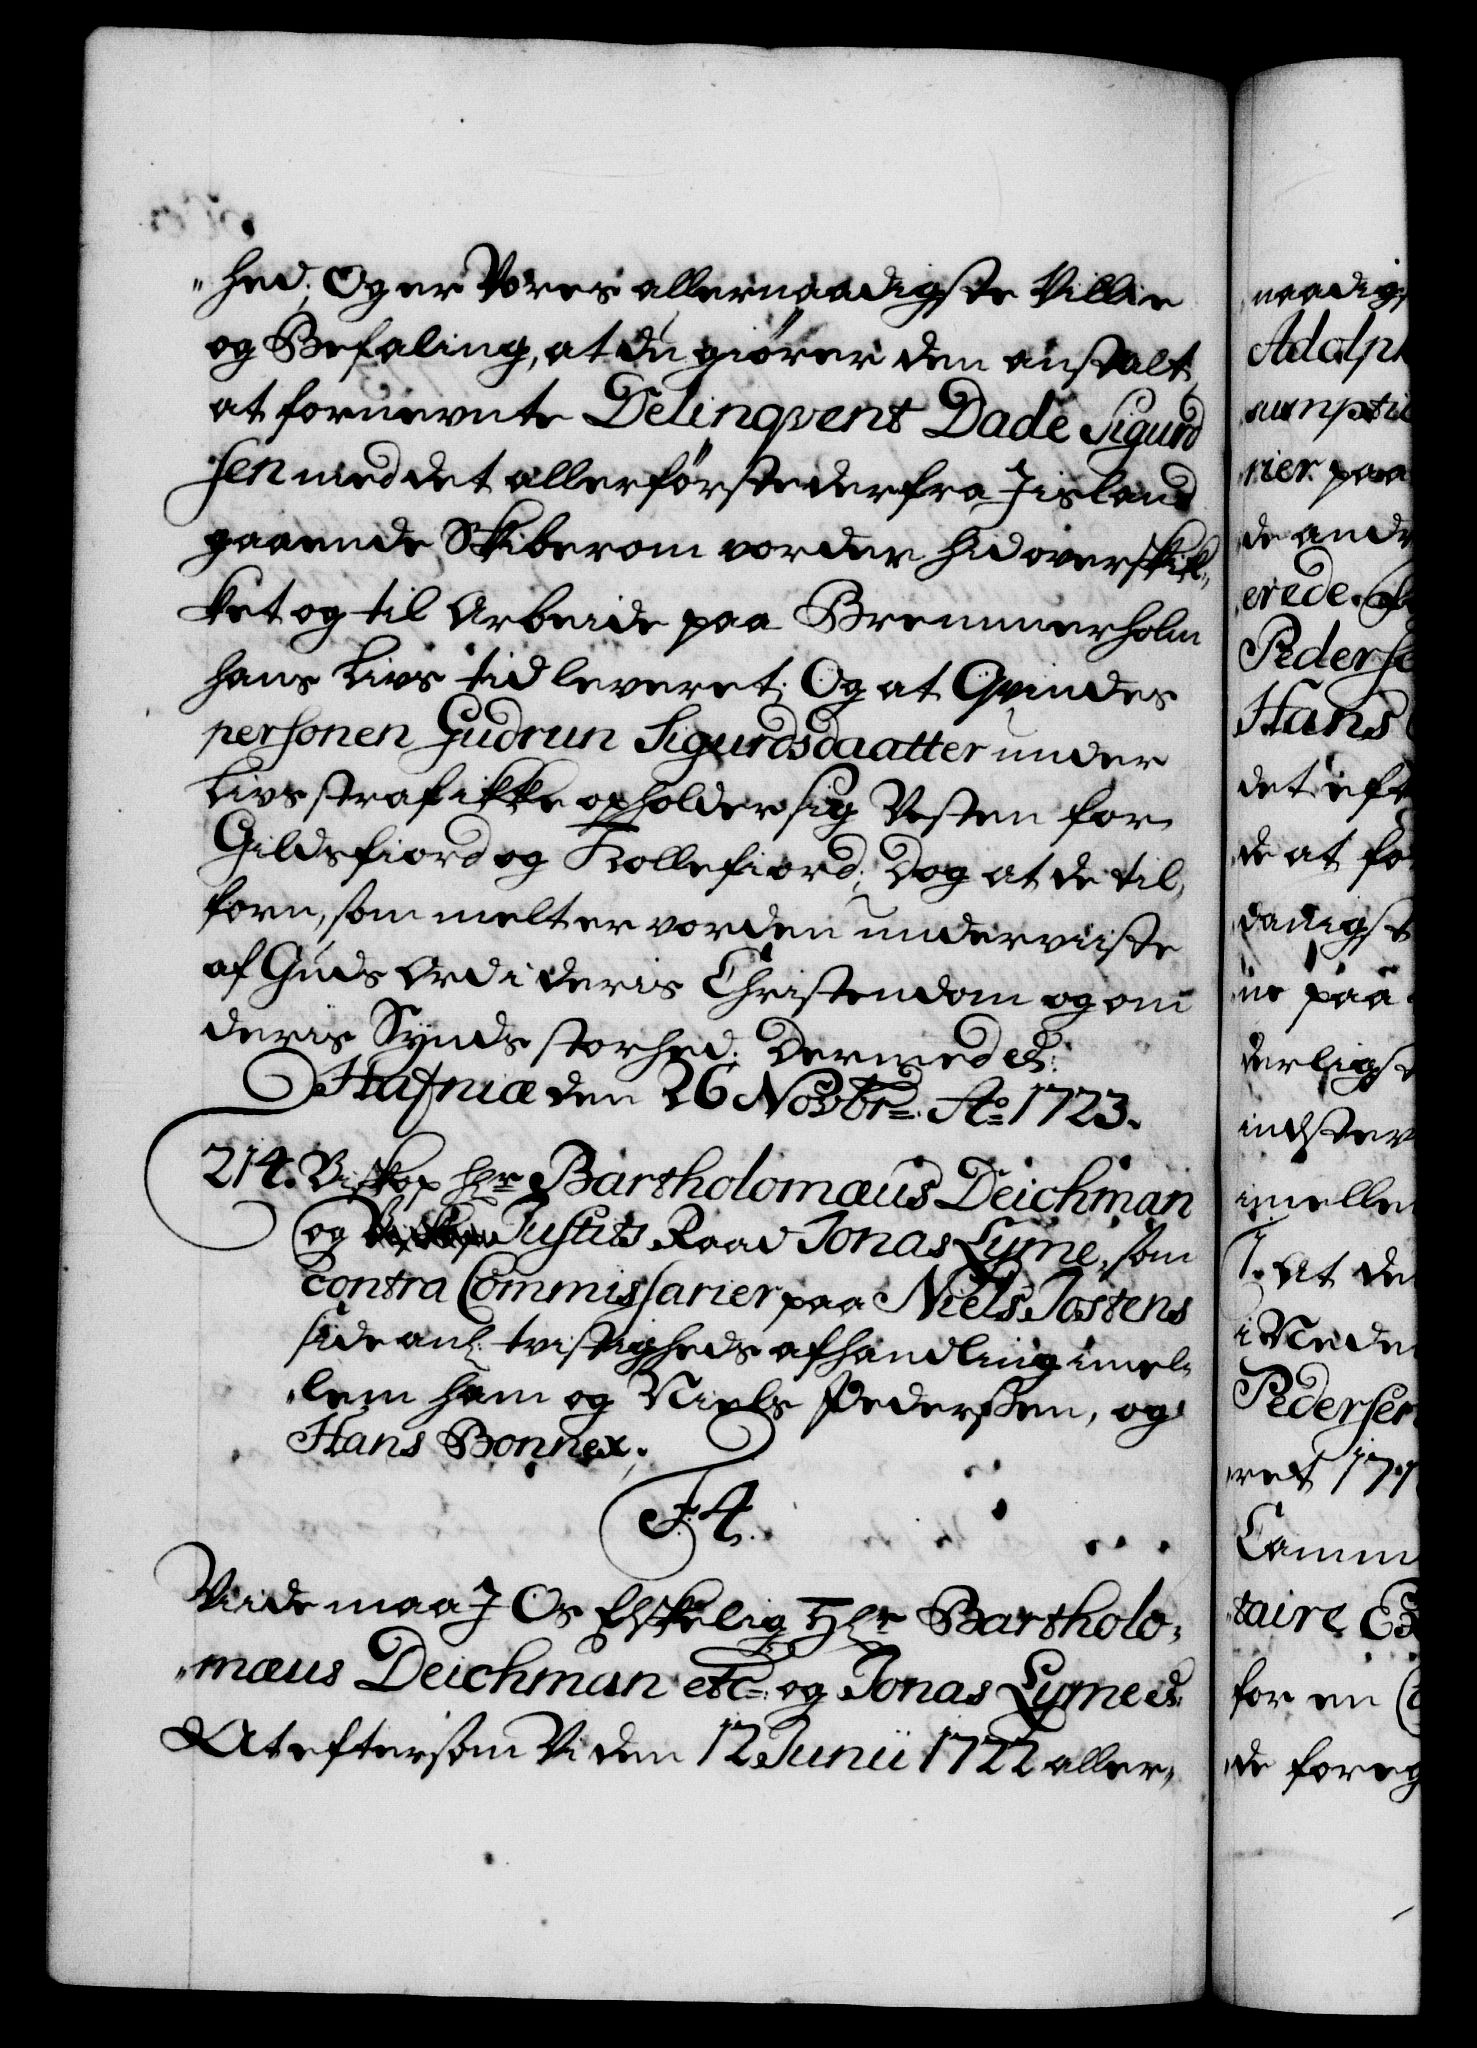 "hed; Og er Vores allernaadigste Villie
og Befaling, at du giører den anstalt,
at fornevnte Delinqvent Dade Sigurd
sen med det allerførste derfra Jisland
gaaende Skiberom vorder hid overskik„
ket og til Arbeide paa Bremmerholm
hans Livs tid leveret; Og at Qvindes
personen Gudrun Sigurdsdaatter under
Livs straf ikke opholder sig Vesten for
Gildsfiord og Kollefiord; Dog at de til,
forn, som melt er vorden underviiste
af Guds Ord i deris Christendom og om
deris Synds storhed; Dermed etc:
Hafniæ den 26 Novbr: Ao 1723.
214. Biskop Hr Bartholomæus Deichman
og Justits Raad Jonas Lyme, som
contra Commissarier paa Niels Jostens
side anl: tvistigheds afhandling imel„
„lem ham og Niels Pederssen, og
Hans Bonnex.
F: 4.
Viide maa J Os Elskelig Hr Bartholo„
„mæus Deichman etc: og Jonas Lyme etc:
At eftersom Vi den 12 Junii 1722 aller„
naadigs
Adolph
sumptil
rier paa
de andr
erede
Pederse
Hans
det eft
de at fo
danigst
ne paa
derligst
indster
imellem
1. At de
i Neden
Pederser
ret 171
Camm
taire
for en
de foreg